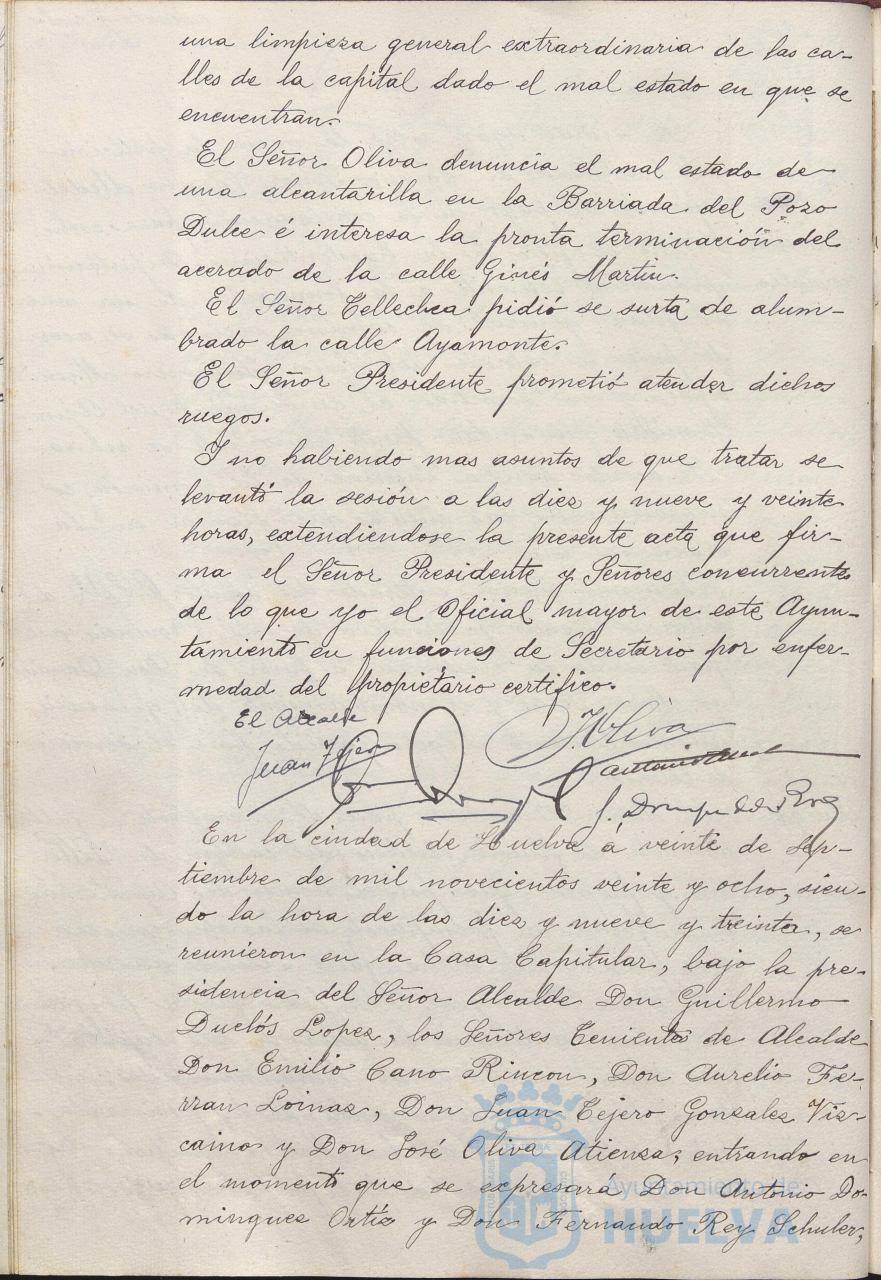 una limpieza general extraordinaria de las ca-
lles de la capital dado el mal estado en que se
encuentran.
El Señor Oliva denuncia el mal estado de
una alcantarilla en la Barriada del Pozo
Dulce é interesa la pronta terminación del
acerado de la calle Ginés Martin.
El Señor Tellechea pidió se surta de alum-
brado la calle Ayamonte.
El Señor Presidente prometió atender dichos
ruegos.
Y no habiendo mas asuntos de que tratar se
levantó la sesión a las diez y nueve y veinte
horas, extendiendose la presente acta que fir-
ma el Señor Presidente y Señores concurrentes
de lo que yo el Oficial mayor de este Ayun-
tamiento en funciones de Secretario por enfer-
medad del propietario certifico.
El Alcalde
J. Oliva
Juan Tejero
En la ciudad de Huelva á veinte de Sep-
tiembre de mil novecientos veinte y ocho, sien-
do la hora de las diez y nueve y treinta, se
reunieron en la Casa Capitular, bajo la pre-
sidencia del Señor Alcalde Don Guillermo
Duclós Lopez, los Señores Tenientes de Alcalde
Don Emilio Cano Rincon, Don Aurelio Fe-
rran Loinaz, Don Juan Tejero Gonzalez Viz-
caino y Don José Oliva Atienza, entrando en
el momento que se expresará Don Antonio Do-
minguez Ortíz y Don Fernando Rey Schuler,
Ayuntamiento de
HUELVA